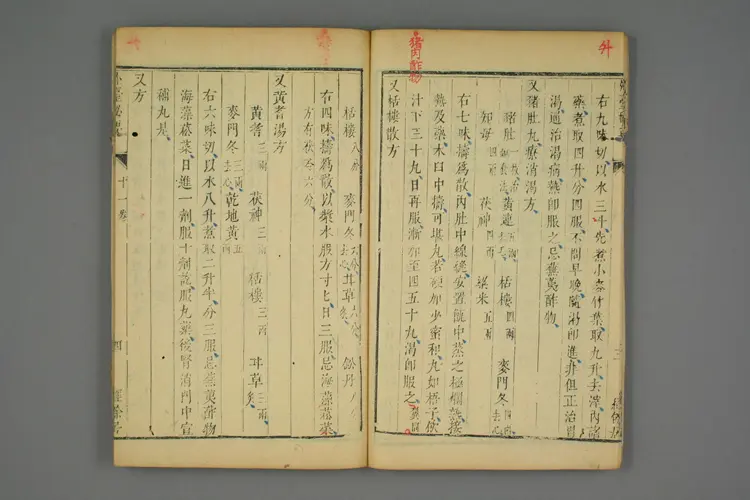 外
右九味切以水三斗先煮小麥竹葉取九升去滓內諸
藥煮取四升分四服不問早晚隨渴即進非但正治胃
渴通治渴病熱即服之忌蕪荑酢物
又豬肚丸療消渴方
豬肚 一枚 黃連 五兩 栝樓 四兩 麥門冬 四兩去心
知母 四兩 茯神 四兩 粱米 五兩
右七味擣為散內肚中線縫安置甑中蒸之極爛熱接
熱及藥木臼中擣可堪丸若硬加少蜜和丸如梧子飲
汁下三十九日再服漸加至四五十丸渴即服之
豬肉酢物
又栝樓散方
栝樓 八分 麥門冬 六分去心 甘草 六分炙 鉛丹 八分
右四味擣為散以漿水服方寸匕日三服忌海藻菘菜
方有茯苓六分
又黃耆湯方
黃耆 三兩 茯神 三兩 栝樓 三兩 甘草 三兩炙
麥門冬 三兩去心 乾地黃 五兩
右六味切以水八升煮取二升半分三服忌蕪荑酢物
海藻菘菜日進一劑服十劑訖服丸藥後腎消門中宣
補丸是
又方
十一卷
四